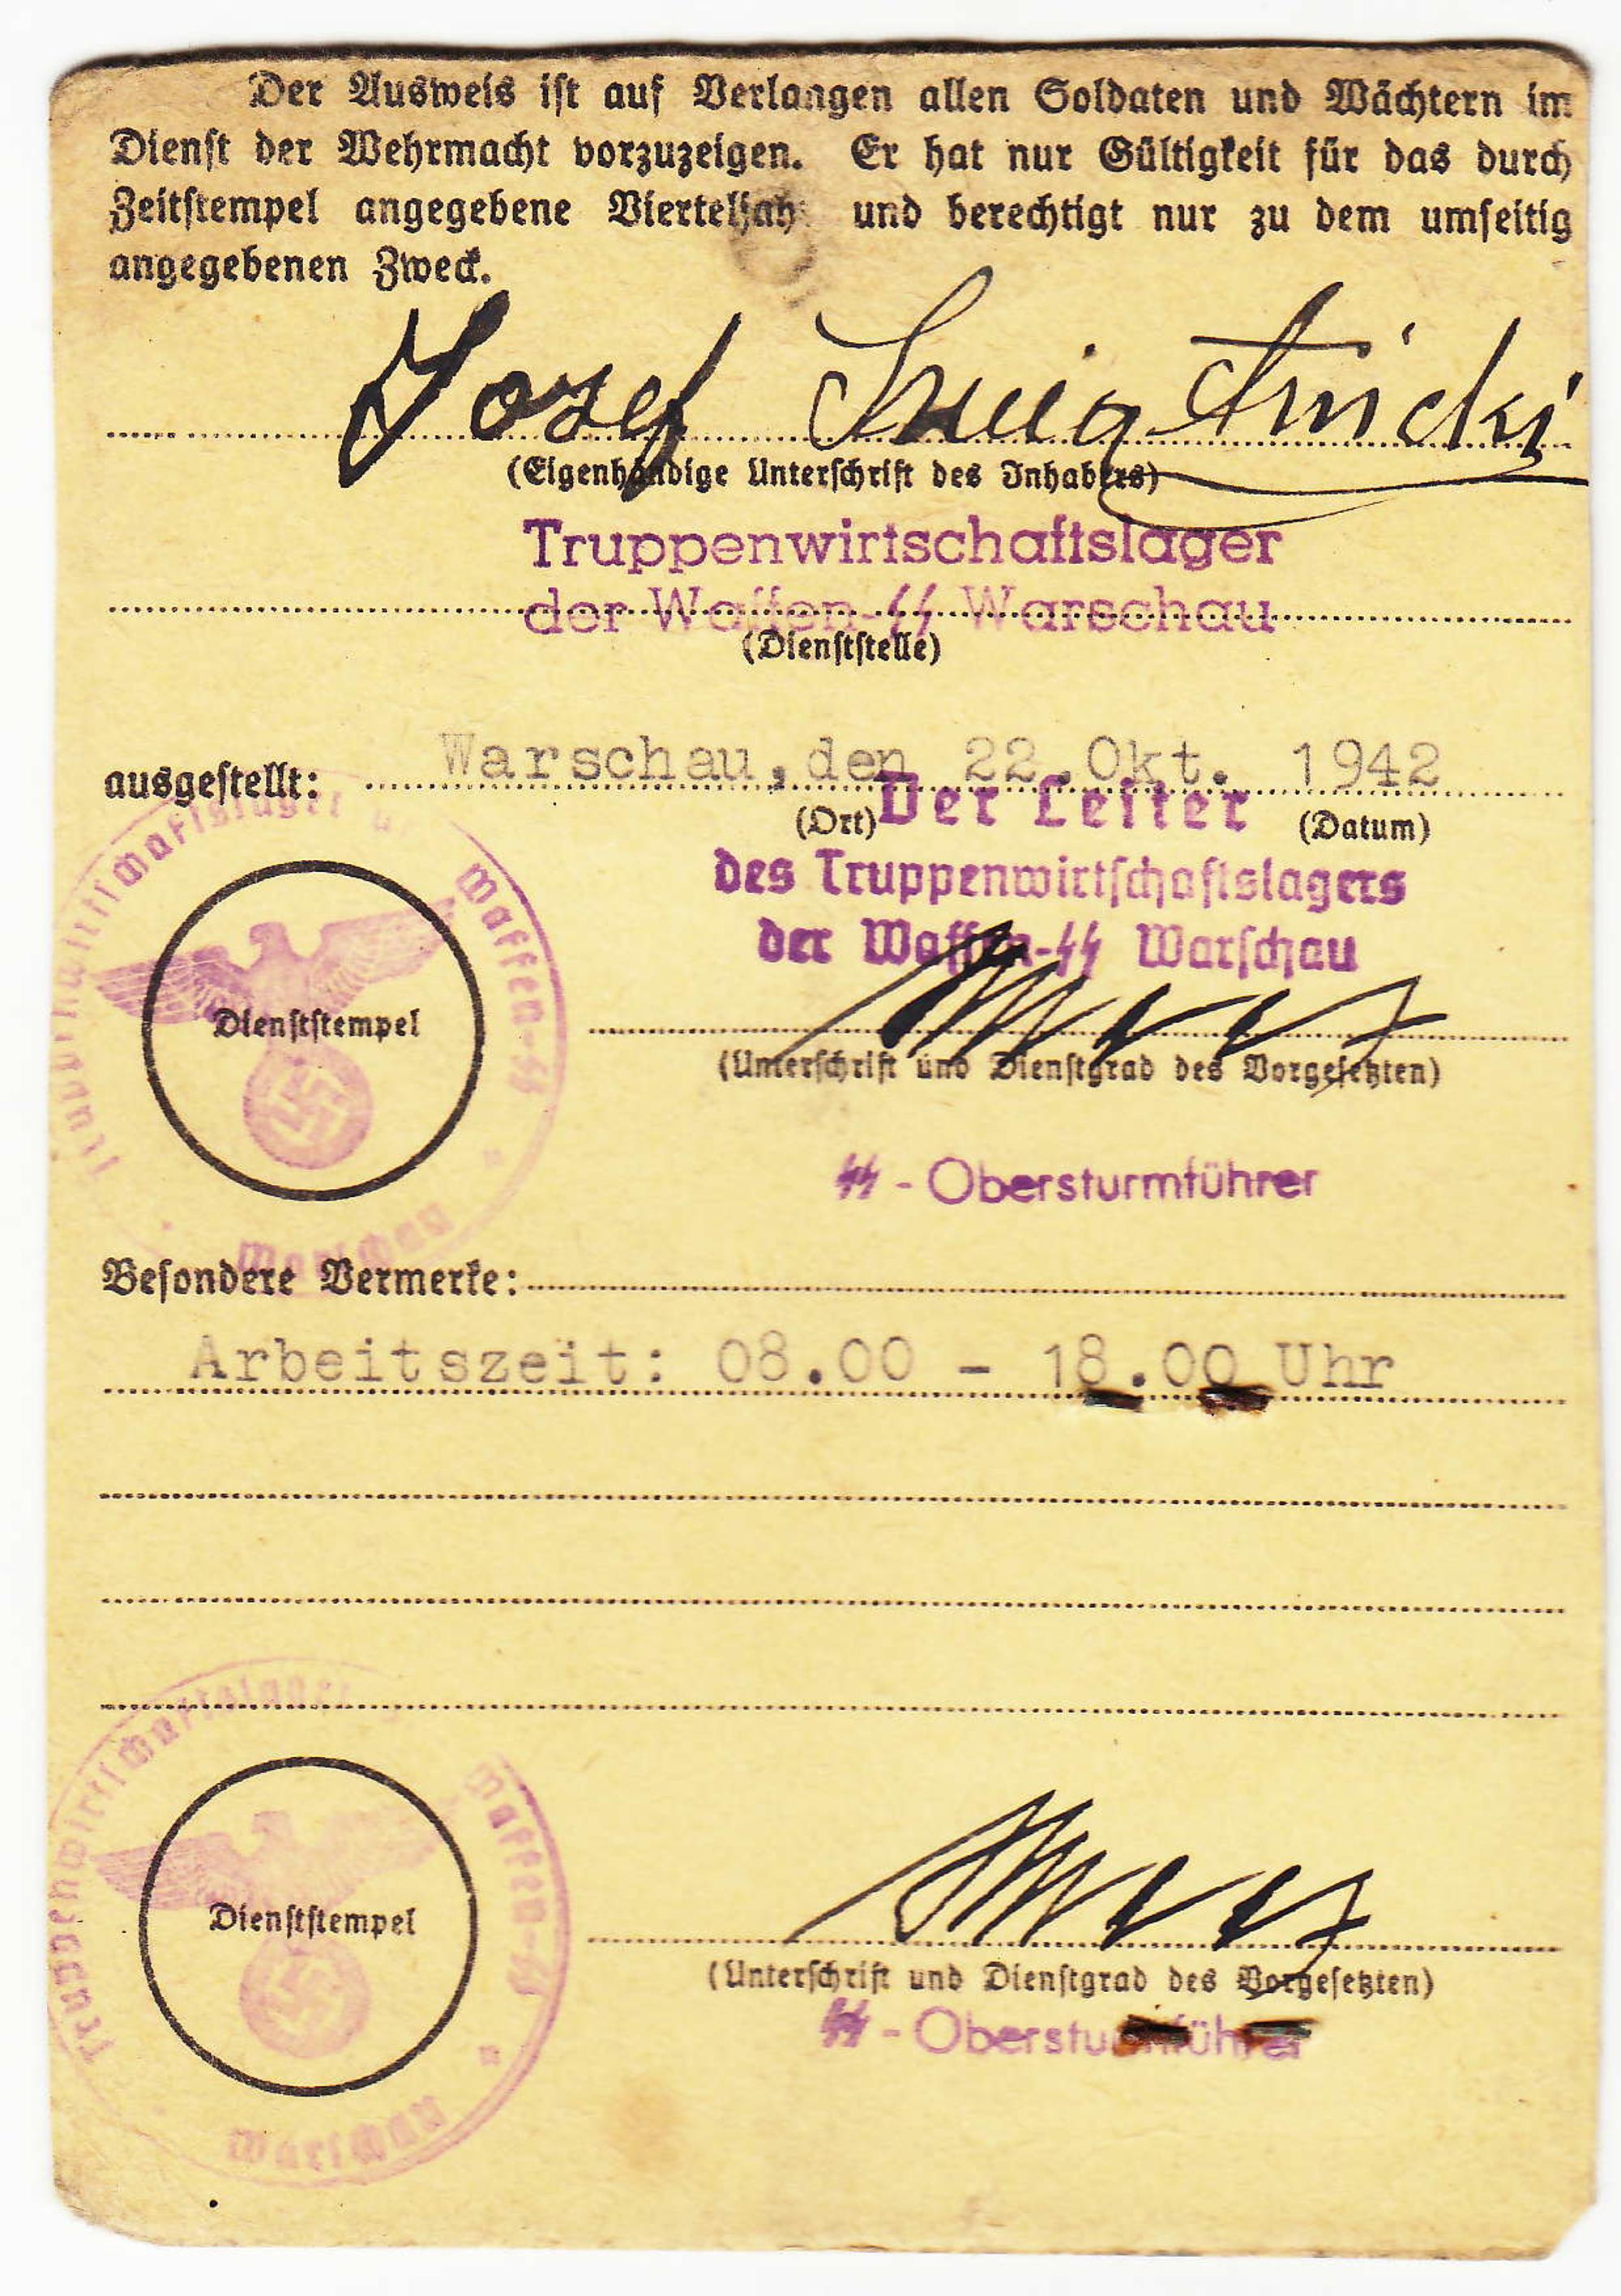 Der Ausweis ist auf Verlangen allen Soldaten und Wächtern im
Dienst der Wehrmacht vorzuzeigen. Er hat nur Gültigkeit für das durch
Zeitstempel angegebene Vierteljahr und berechtigt nur zu dem umseitig
angegebenen Zweck.
Jozef
(Eigenhändige Unterschrift des Inhabers)
Truppenwirtschaftslager
der Waffen-SS Warschau
(Dienststelle)
ausgestellt: Warschau, den 22.Okt. 1942
(Ort) (Datum)
Der Leiter
des Truppenwirtschaftslagers
der Waffen-SS Warschau
Truppenwirtschaftslager Waffen-SS
Warschau
Dienststempel
(Unterschrift und Dienstgrad des Vorgesetzten)
SS - Obersturmführer
Besondere Vermerke:
Arbeitszeit: 08.00 - 18.00 Uhr
Truppenwirtschaftslager Waffen-SS
Warschau
Dienststempel
(Unterschrift und Dienstgrad des Vorgesetzten)
SS - Obersturmführer